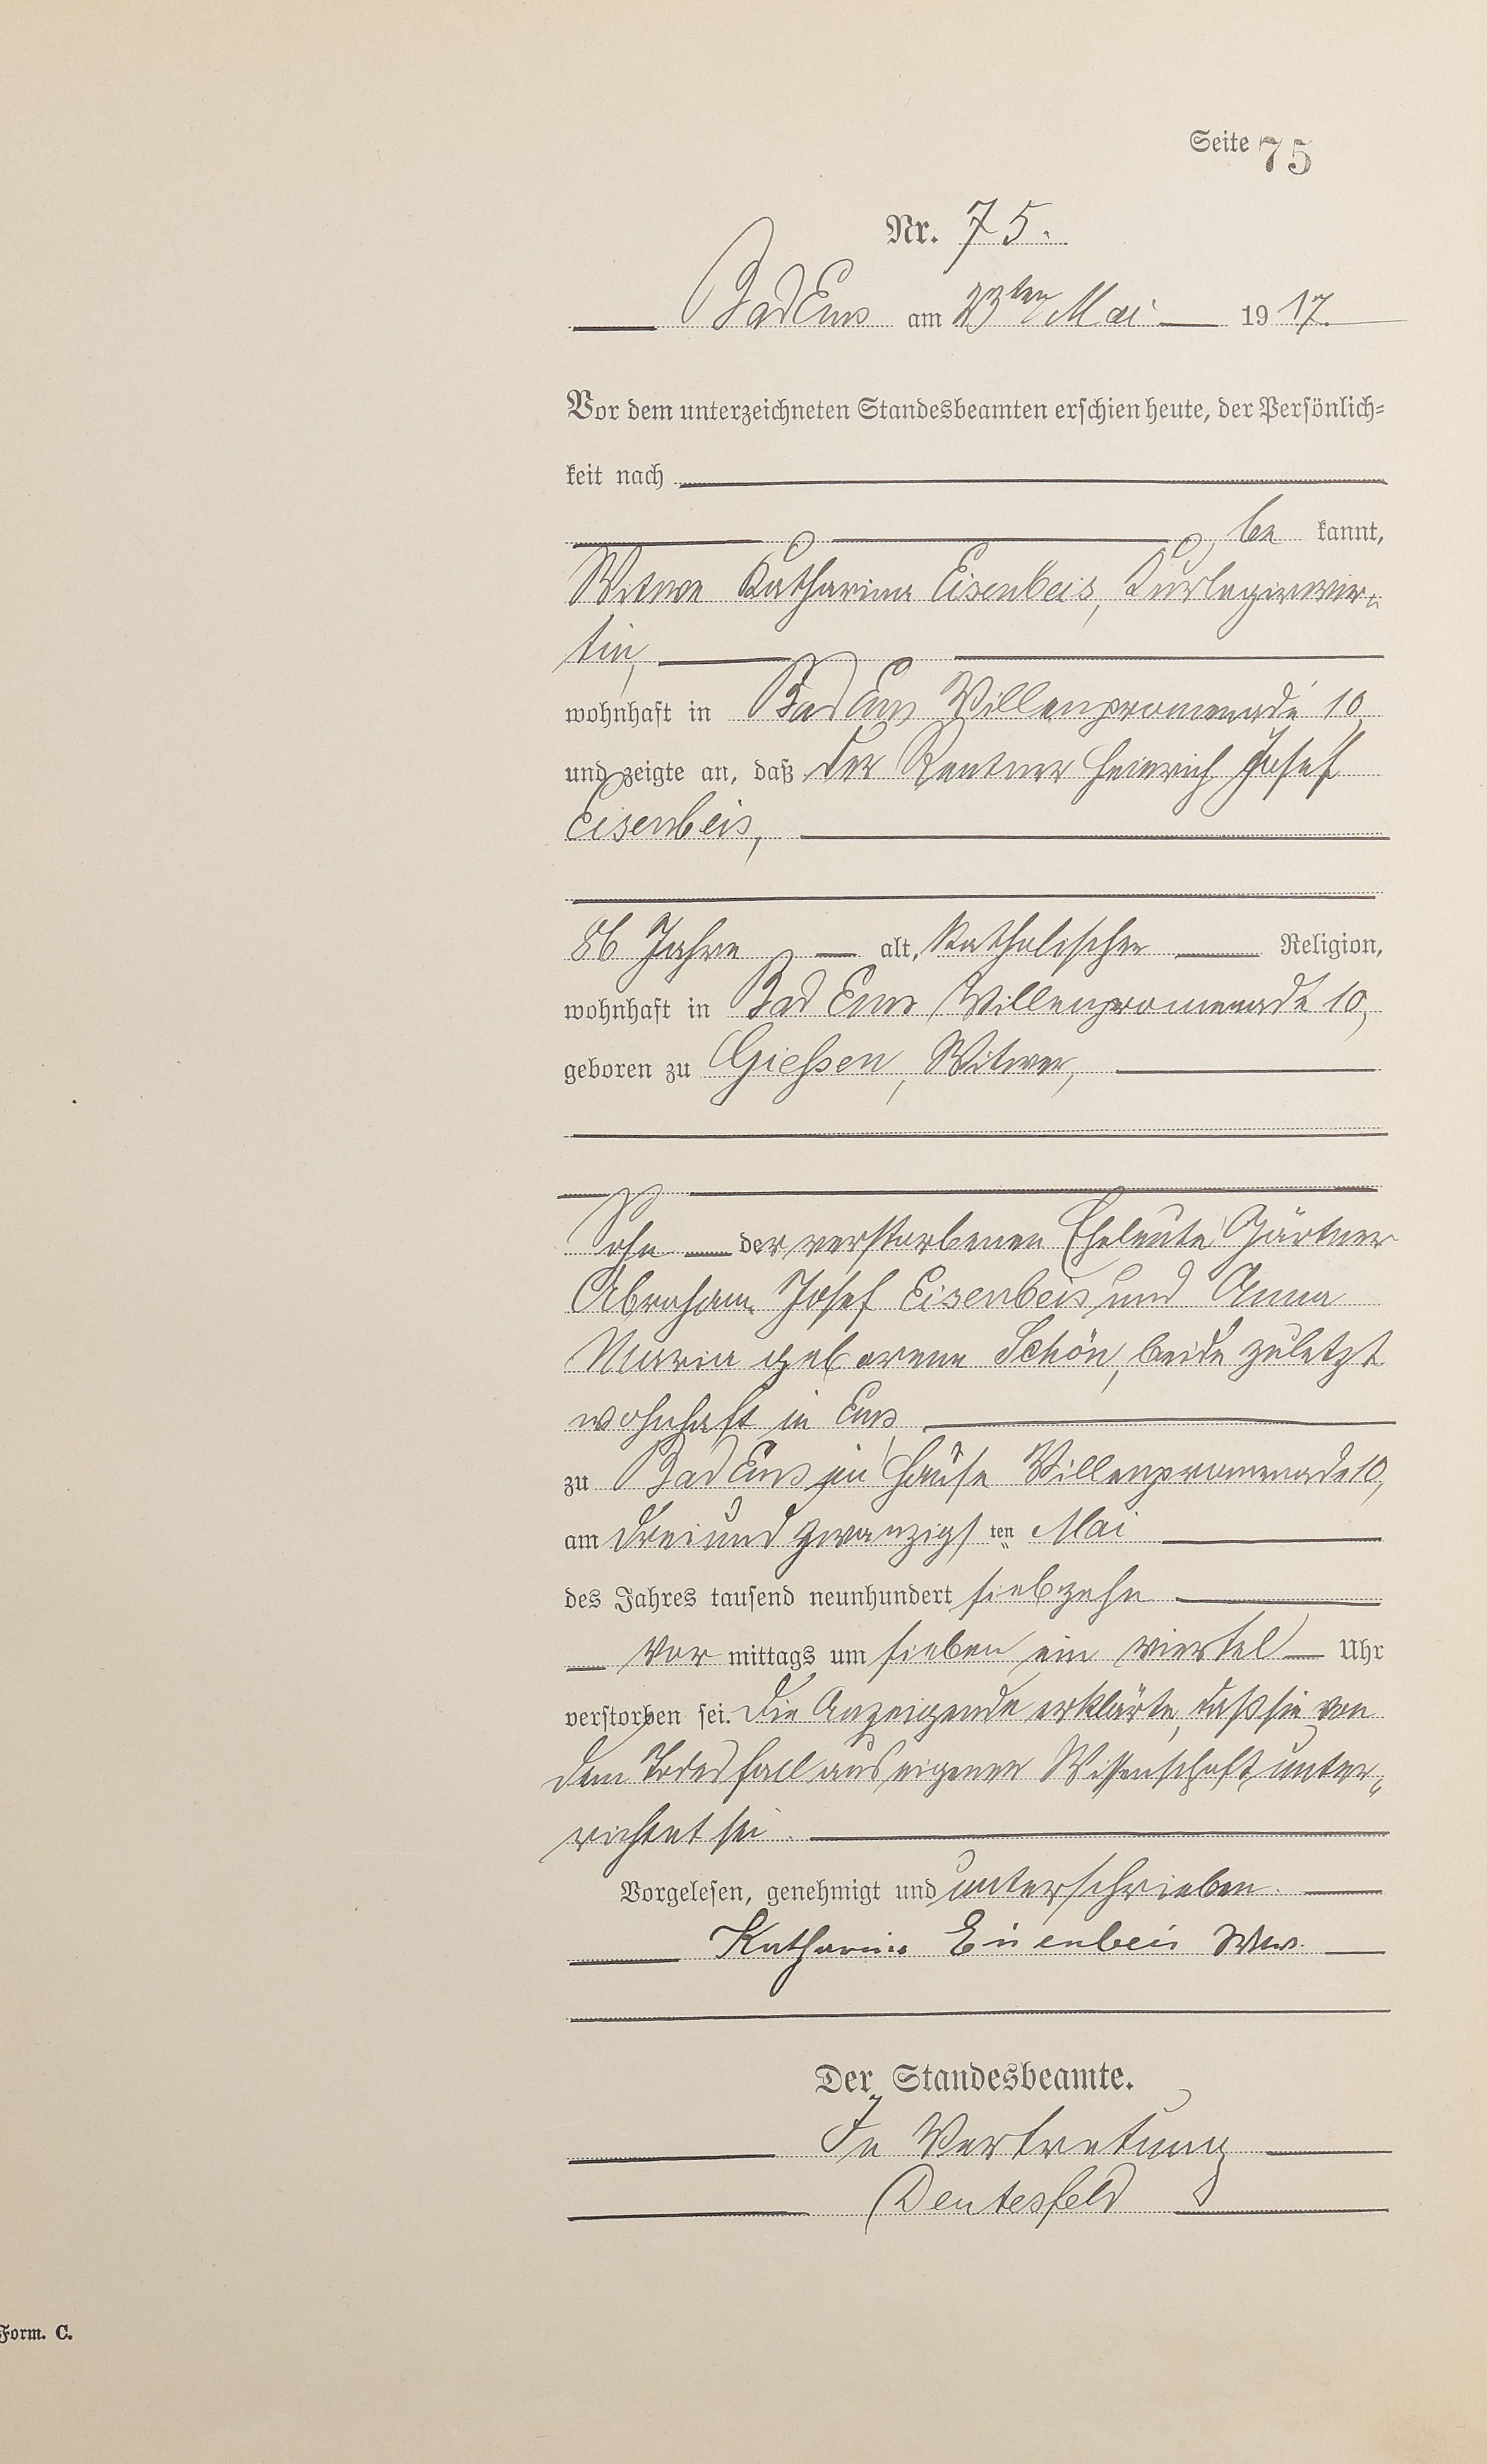 Seite 75
Nr. 75.
Bad Ems am 23ten Mai 1917.
Vor dem unterzeichneten Standesbeamten erschien heute, der Persönlich=
keit nach
be kannt,
Witwe Katharina Eisenbeis, Kurlogierwir=
tin,
wohnhaft in Bad Ems Villenpromenade 10,
und zeigte an, daß der Rentner Heinrich Josef
Eisenbeis,
86 Jahre alt, katholischer Religion,
wohnhaft in Bad Ems Villenpromenade 10,
geboren zu Giessen, Witwer,
Sohn der verstorbenen Eheleute Gärtner
Abraham Josef Eisenbeis und Anna
Maria geborene Schön, beide zuletzt
wohnhaft in Ems
zu Bad Ems im Hause Villenpromenade 10,
am dreiundzwanzigsten Mai
des Jahres tausend neunhundert siebzehn
Vor mittags um sieben ein viertel Uhr
verstorben sei. Die Anzeigende erklärte, daß sie von
dem Todesfall aus eigener Wissenschaft unter=
richtet sei.
Vorgelesen, genehmigt und unterschrieben.
Katharina Eisenbeis Wwe.
Der Standesbeamte.
In Vertretung
Dentesfeld
Form. C.